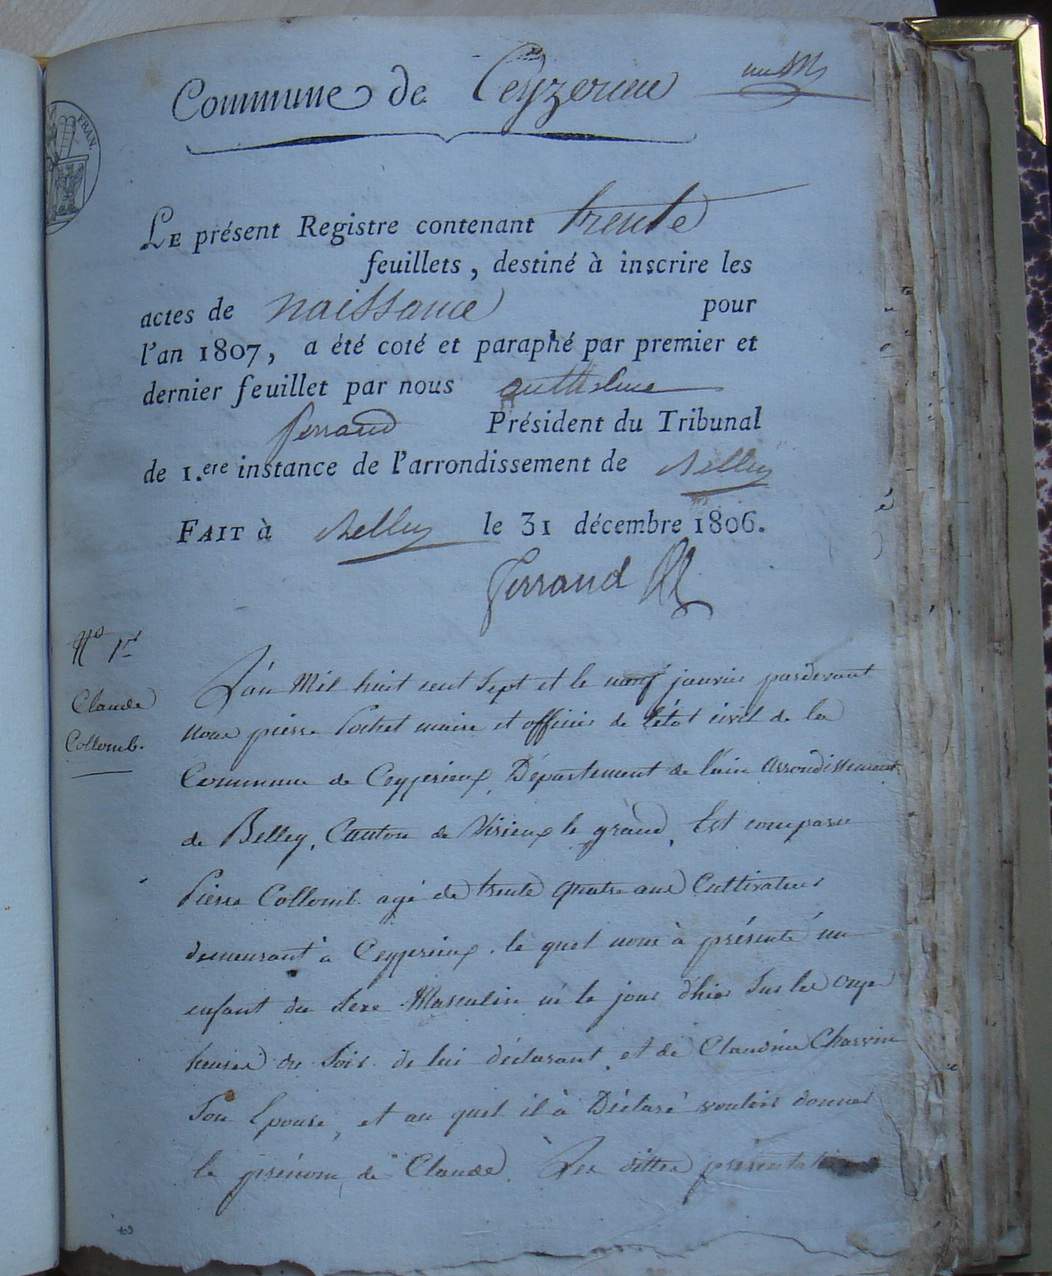 Commune de Ceyzerieu
FRAN.
Le présent Registre contenant trente
feuillets, destiné à inscrire les
actes de naissance pour
l'an 1807, a été coté et paraphé par premier et
dernier feuillet par nous anthelme
ferrand Président du Tribunal
de 1.ere instance de l'arrondissement de Belley
FAIT à Belley le 31 décembre 1806.
ferrand
No 1er
Claude
Collomb.
L'an Mil huit cent Sept et le neuf janvier pardevant
nous pierre Pochet maire et officier de l'état civil de la
Commune de Ceyzerieux, Département de l'ain Arrondissement
de Belley, Canton de Virieux le grand, Est comparu
Pierre Collomb agé de trente quatre ans Cultivateur
demeurant à Ceyzerieux. le quel nous à présenté un
enfant du Sexe Masculin né le jour d'hier Sur les onze
heures du Soir de lui déclarant, et de Claudine Charvin
Son Epouse, et au quel il à Déclaré vouloir donner
le prénom de Claude. Les dittes présentation